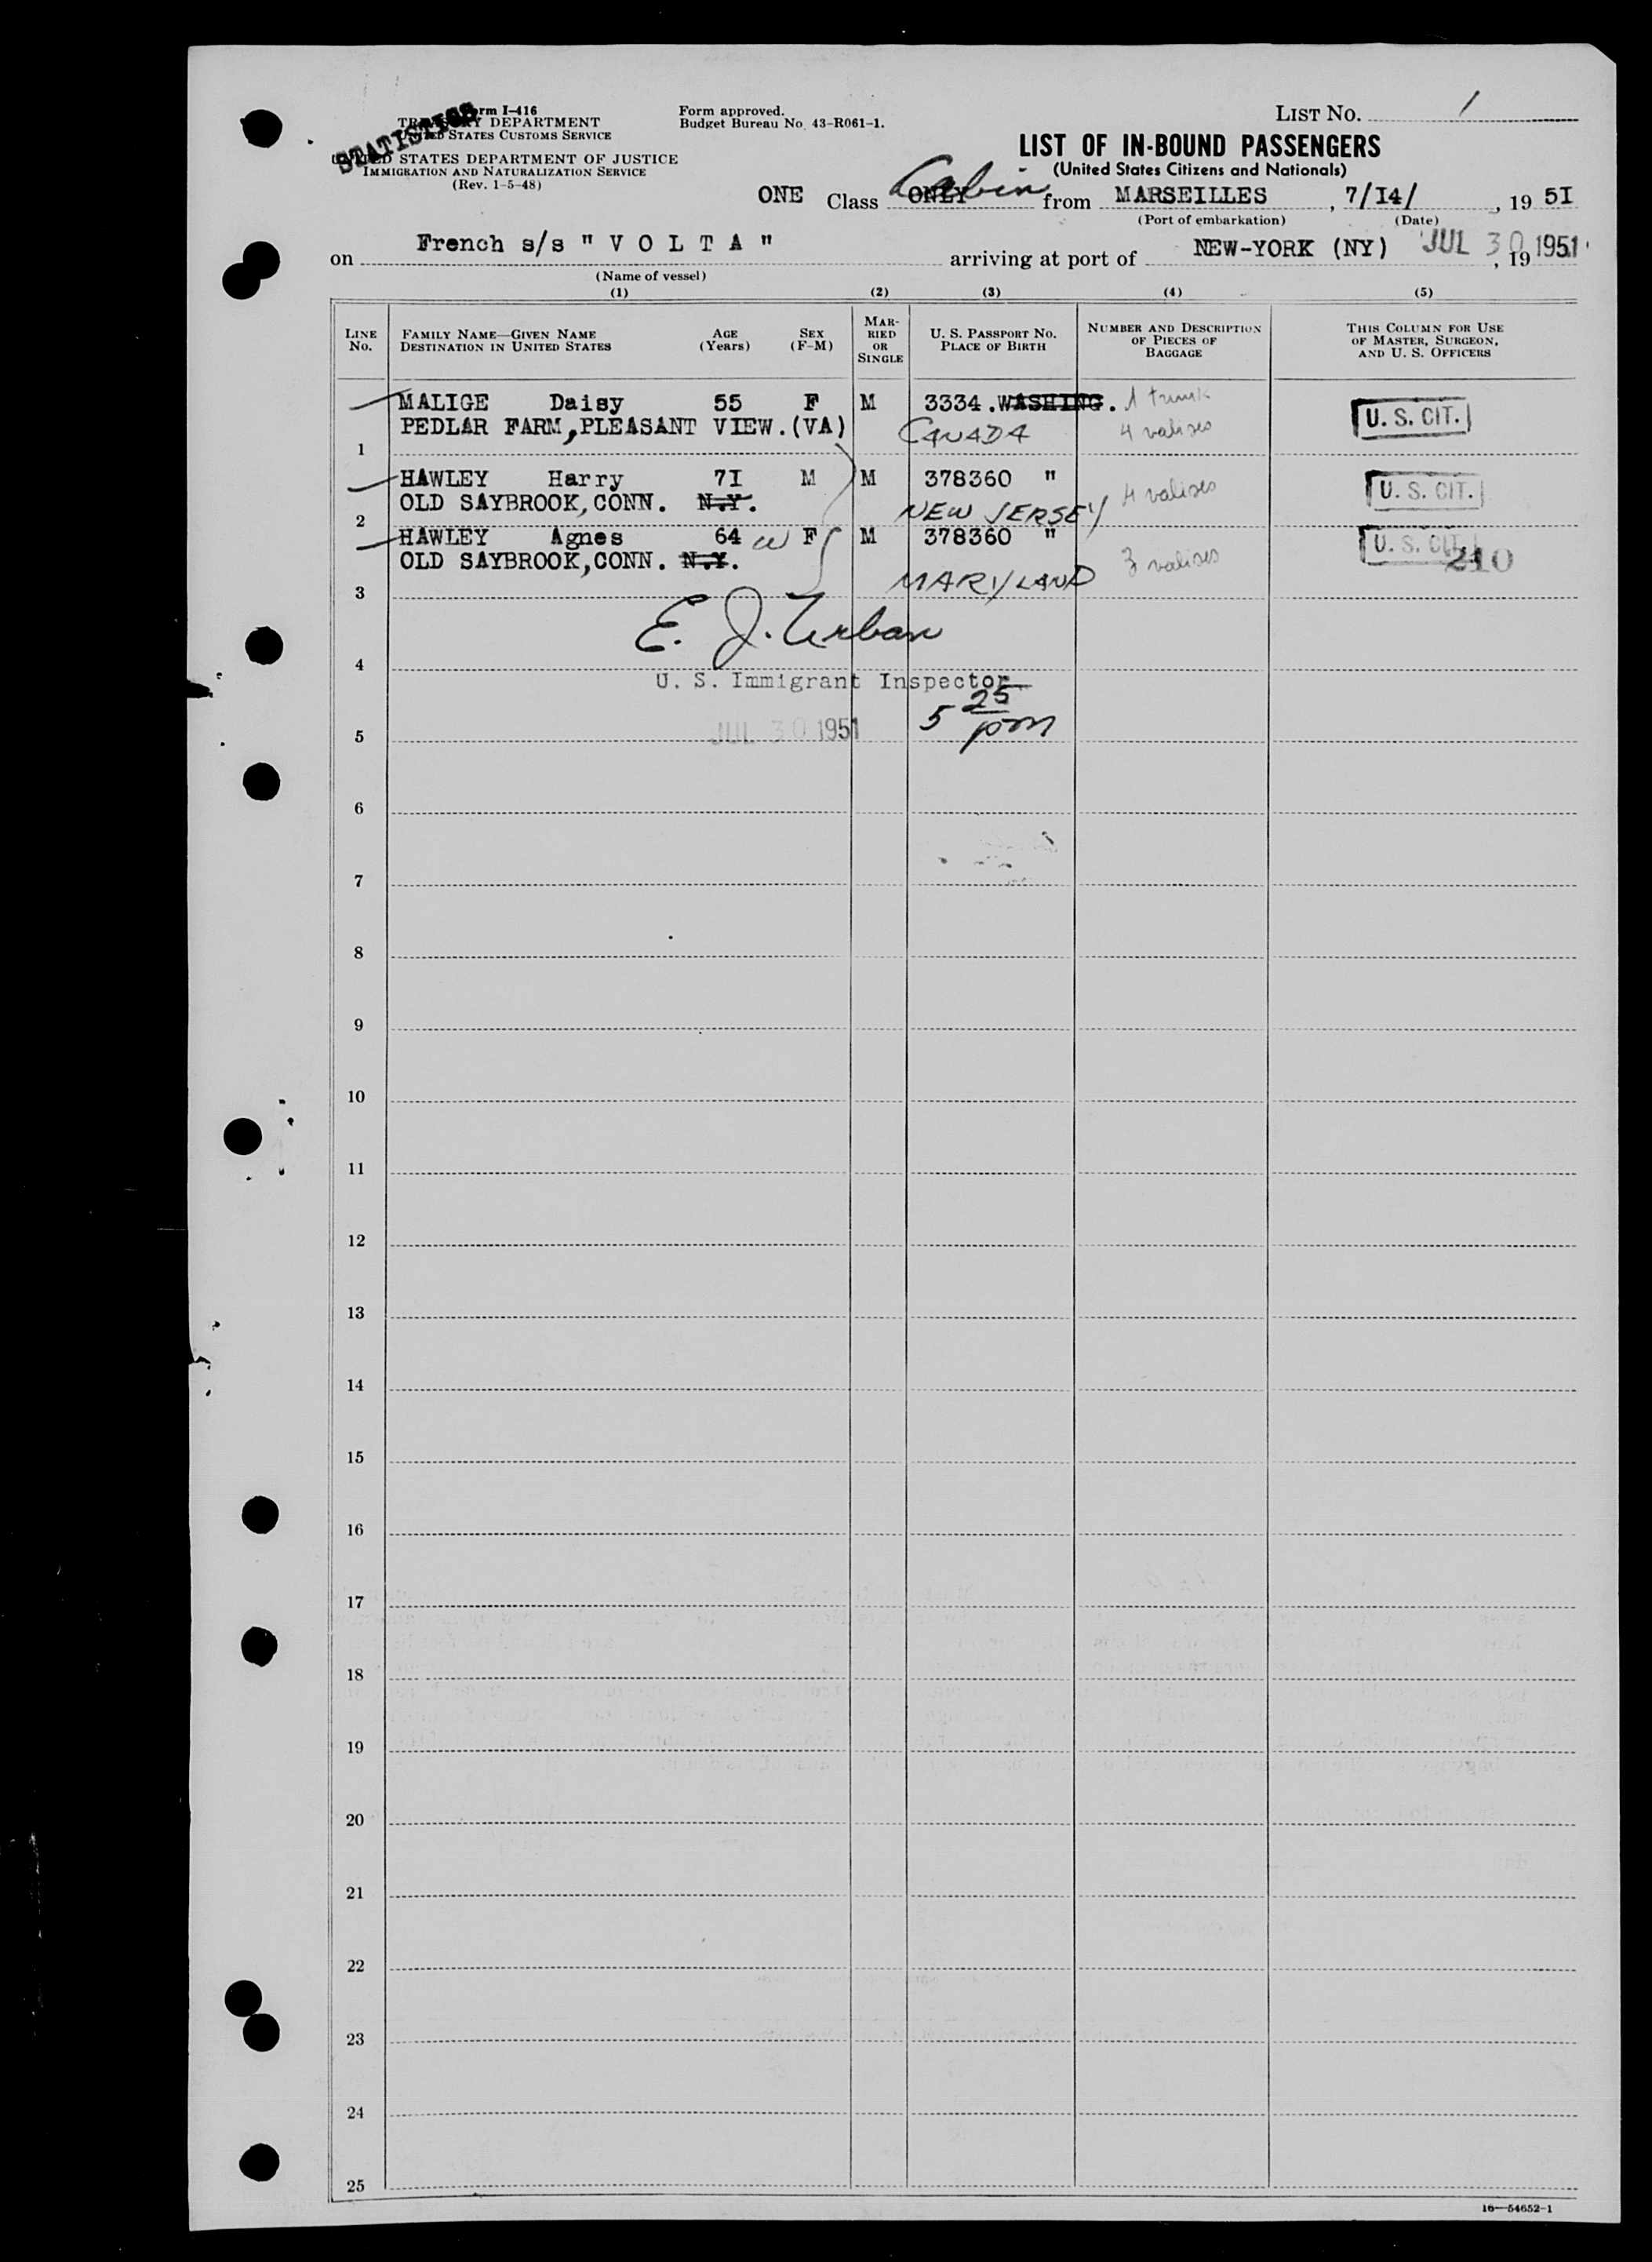 Form I-416
TREASURY DEPARTMENT
UNITED STATES CUSTOMS SERVICE
STATISTICS
UNITED STATES DEPARTMENT OF JUSTICE
IMMIGRATION AND NATURALIZATION SERVICE
(Rev. 1-5-48)
Form approved.
Budget Bureau No. 43-R061-1.
LIST NO. 1
LIST OF IN-BOUND PASSENGERS
(United States Citizens and Nationals)
ONE Class ONLY Cabin from MARSEILLES, 7/I4/, 19 5I
(Port of embarkation) (Date)
on French s/s " V O L T A " arriving at port of NEW-YORK (NY) JUL 30 1951, 19
(Name of vessel)
(1) (2) (3) (4) (5)
LINE No. FAMILY NAME—GIVEN NAME DESTINATION IN UNITED STATES AGE (Years) SEX (F-M) MARRIED OR SINGLE U. S. PASSPORT NO. PLACE OF BIRTH NUMBER AND DESCRIPTION OF PIECES OF BAGGAGE THIS COLUMN FOR USE OF MASTER, SURGEON, AND U. S. OFFICERS
MALIGE Daisy 55 F M 3334.WASHING. 1 trunk U. S. CIT.
PEDLAR FARM, PLEASANT VIEW.(VA) CANADA 4 valises
1
HAWLEY Harry 7I M M 378360 " 4 valises U. S. CIT.
OLD SAYBROOK,CONN. N.Y. NEW JERSEY
2
HAWLEY Agnes 64 W F M 378360 " 3 valises U. S. CIT.
OLD SAYBROOK,CONN. N.Y. MARYLAND 210
3
E. J. Urban
4
U. S. Immigrant Inspector
JUL 30 1951 5 25 pm
5
6
7
8
9
10
11
12
13
14
15
16
17
18
19
20
21
22
23
24
25
16—54652-1